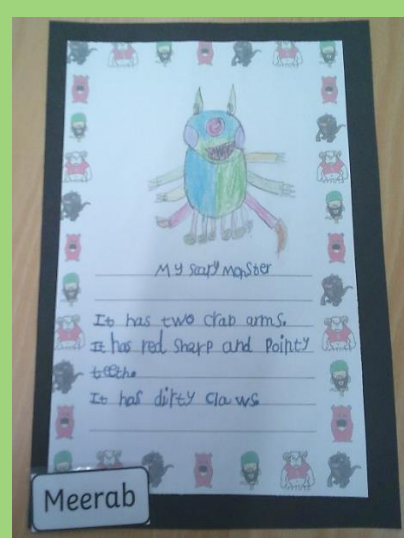 My scary Monster
It has two crab arms.
It has red sharp and pointy
teeth.
It has dirty claws
Meerab